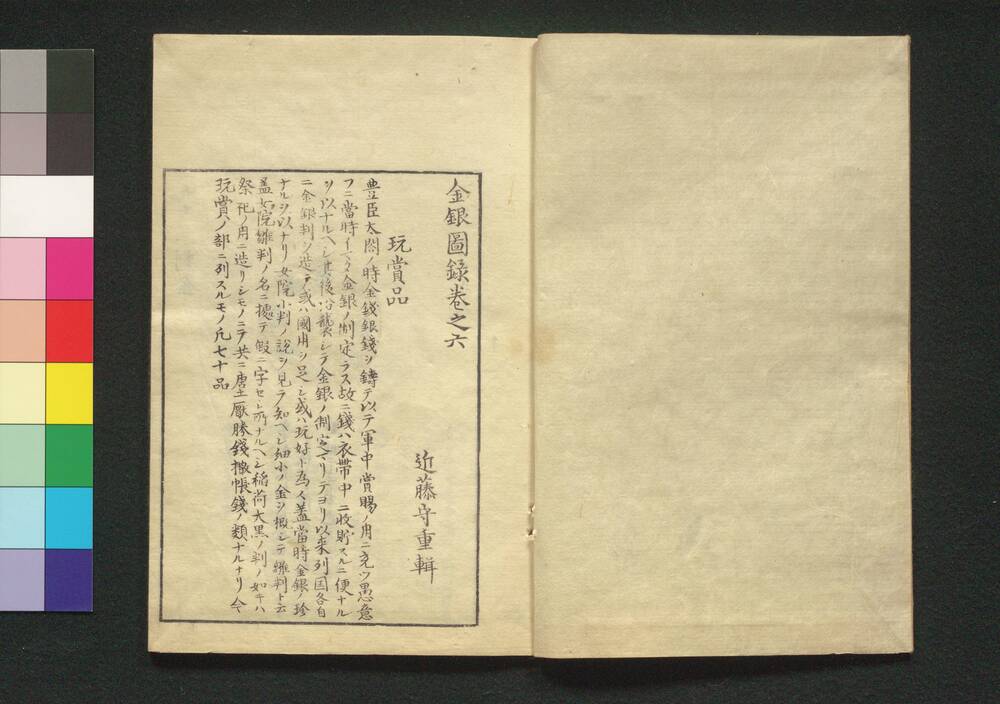 金銀圖錄卷之六
近藤守重輯
玩賞品
豊臣太閤ノ時金錢銀錢ヲ鑄テ以テ軍中賞賜ノ用ニ充ツ愚意
フニ當時イマタ金銀ノ制定ラス故ニ錢ハ衣帶中ニ收貯スルニ便ナル
ヲ以ナルヘシ其後沿襲シテ金銀ノ制定リテヨリ以来列国各自
ニ金銀判ヲ造テ或ハ國用ヲ足シ或ハ玩好ト為ス蓋當時金銀ノ珍
ナルヲ以ナリ女院小判ノ說ヲ見テ知ヘシ細小ノ金ヲ概シテ雛判ト云
蓋女院雛判ノ名ニ據テ假ニ字セシ所ナルヘシ稲荷大黒ノ判ノ如キハ
祭祀ノ用ニ造リシモノニテ共ニ唐土厭勝錢撒帳錢ノ類ナルナリ今
玩賞ノ部ニ列スルモノ凡七十品